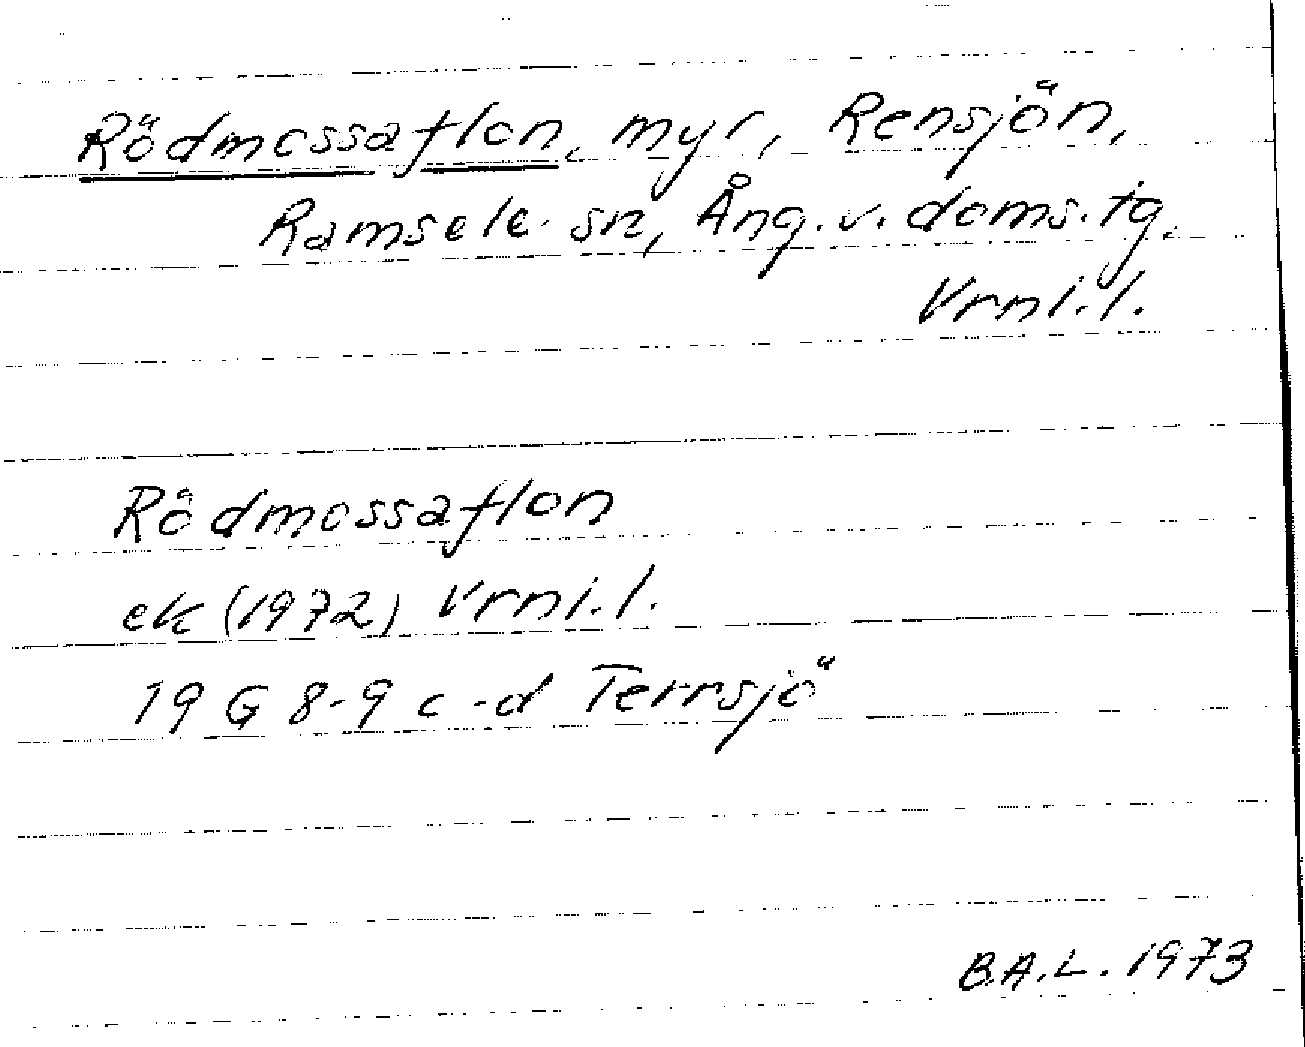 Rödmossaflon, myr, Rensjön,
Ramsele sn, Ång. v. doms. tg.
Vrnl. l.
Rödmossaflon
ek (1972) Vrnl. l.
19 G 8-9 c-d Terrsjö
B.A.L. 1973